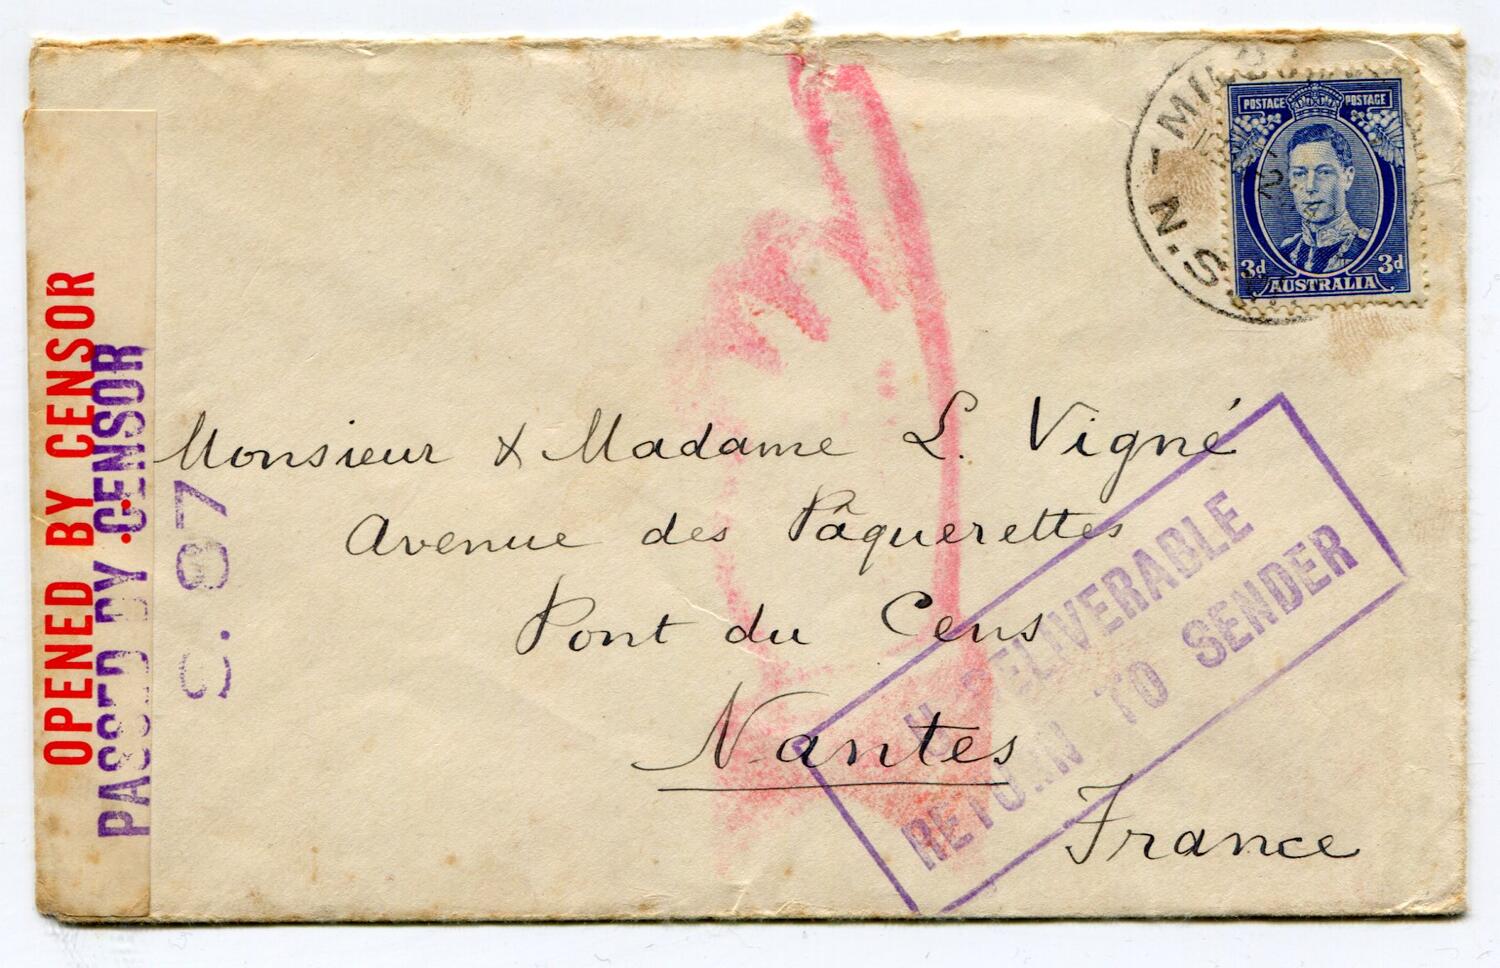 POSTAGE POSTAGE
3d 3d
AUSTRALIA
N.S.
OPENED BY CENSOR
PASSED BY CENSOR
S. 87
Monsieur & Madame L. Vigné
Avenue des Pâquerettes
Pont du Cens
Nantes
France
UNDELIVERABLE
RETURN TO SENDER